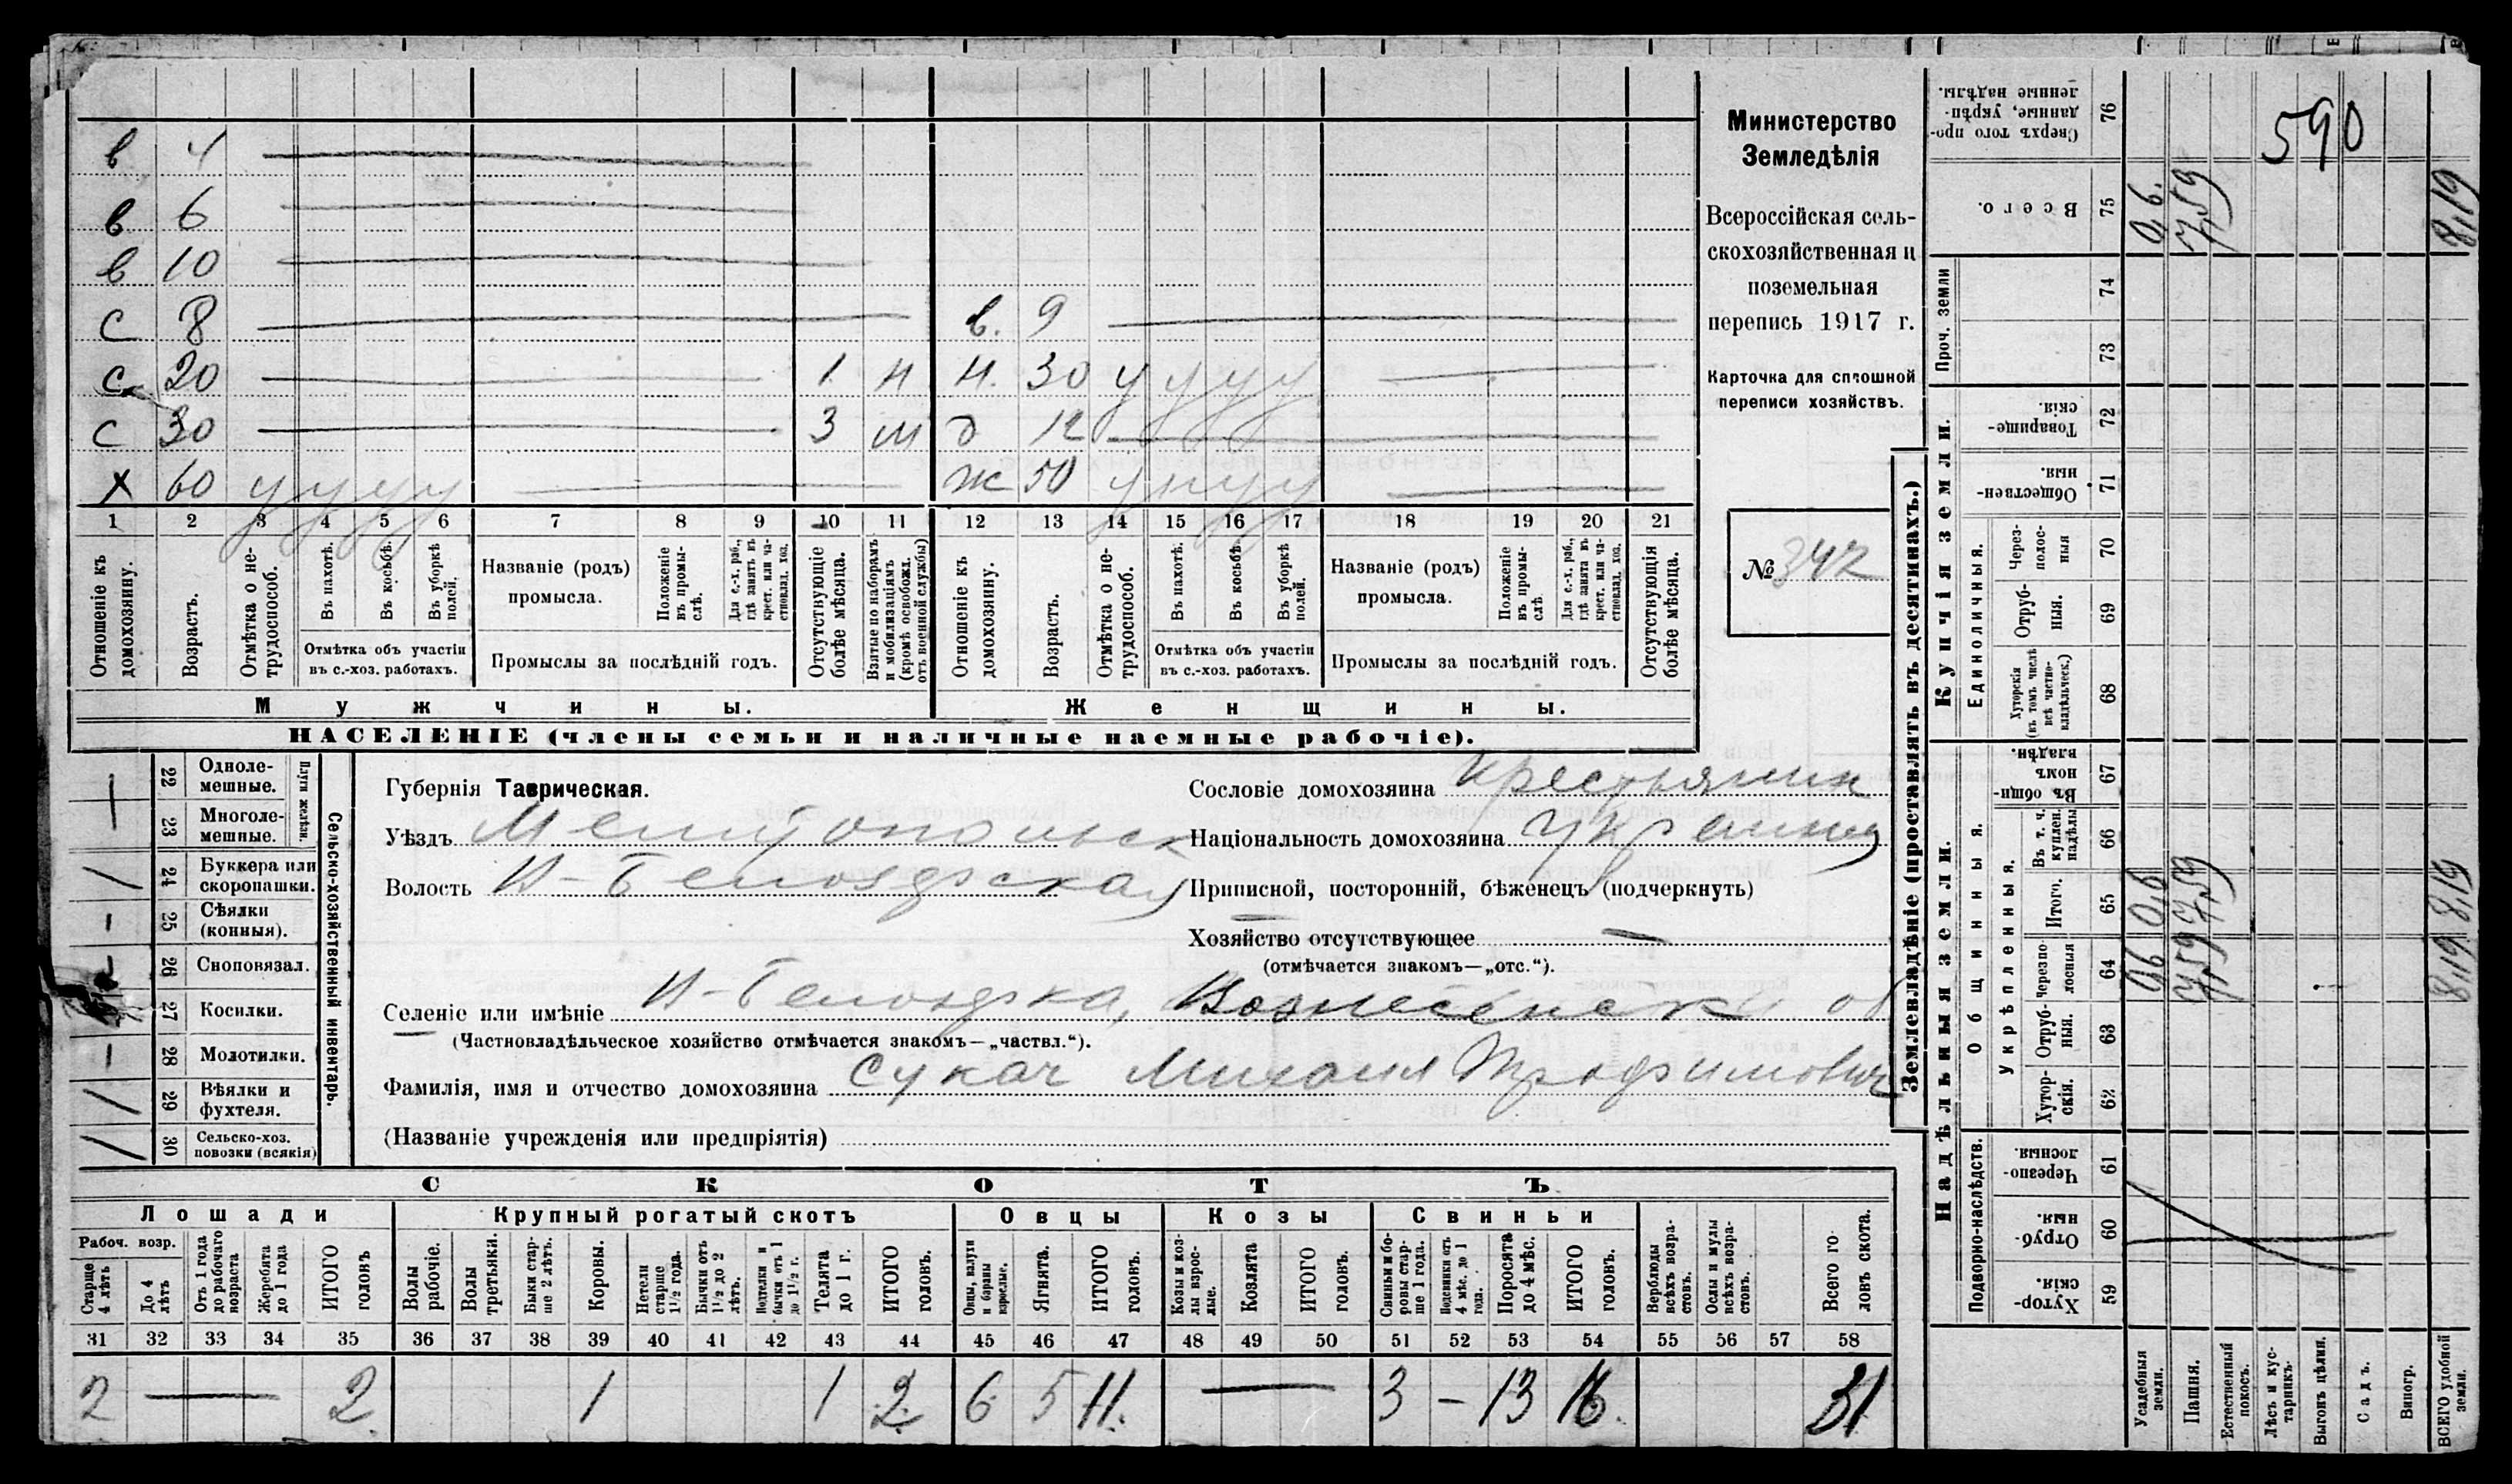 590
в 4
в 6
в 10
с 8 в. 9
с 20 1 н н. 30 у у у у
с 30 3 м д 12
х 60 у у у у ж 50 у н у у
1 2 3 4 5 6 7 8 9 10 11 12 13 14 15 16 17 18 19 20 21
Отношеніе къ домохозяину.
Возрастъ.
Отмѣтка о нетрудоспособ.
Въ пахотѣ.
Въ косьбѣ.
Въ уборкѣ полей.
Отмѣтка объ участіи
въ с.-хоз. работахъ.
Названіе (родъ)
промысла.
Положеніе въ промыслѣ.
Для с.-х. раб., гдѣ занятъ въ крест. или частновлад. хоз.
Промыслы за послѣдній годъ.
Отсутствующіе болѣе мѣсяца.
Взятые по наборамъ и мобилизаціямъ (кромѣ освобожд. отъ военной службы)
Отношеніе къ домохозяину.
Возрастъ.
Отмѣтка о нетрудоспособ.
Въ пахотѣ.
Въ косьбѣ.
Въ уборкѣ полей.
Отмѣтка объ участіи
въ с.-хоз. работахъ.
Названіе (родъ)
промысла.
Положеніе въ промыслѣ.
Для с.-х. раб., гдѣ занята въ крест. или частновлад. хоз.
Промыслы за послѣдній годъ.
Отсутствующія болѣе мѣсяца.
Мужчины.
Женщины.
НАСЕЛЕНІЕ (члены семьи и наличные наемные рабочіе).
Министерство
Земледѣлія
Всероссійская сель-
скохозяйственная и
поземельная
перепись 1917 г.
Карточка для сплошной
переписи хозяйствъ.
№ 342
Сельско-хозяйственный инвентарь.
Плуги желѣзн.
22 Одноле-
мешные.
23 Многоле-
мешные.
24 Буккера или
скоропашки.
25 Сѣялки
(конныя).
26 Сноповязал.
27 Косилки.
28 Молотилки.
29 Вѣялки и
фухтеля.
30 Сельско-хоз.
повозки (всякія)
Губернія Таврическая.
Уѣздъ Мелитопольск
Волость Н-Белозерская
Сословіе домохозяина Крестьянин
Національность домохозяина Украинец
Приписной, посторонній, бѣженецъ (подчеркнуть)
Хозяйство отсутствующее
(отмѣчается знакомъ—„отс.“).
Селеніе или имѣніе Н-Белозерка, Вознесенск. об
(Частновладѣльческое хозяйство отмѣчается знакомъ—„частвл.“).
Фамилія, имя и отчество домохозяина Сукач Михаил Трофимович
(Названіе учрежденія или предпріятія)
СКОТЪ
Лошади
Крупный рогатый скотъ
Овцы
Козы
Свиньи
Рабоч. возр.
Старше 4 лѣтъ
До 4 лѣтъ
Отъ 1 года до рабочаго возраста
Жеребята до 1 года
ИТОГО головъ
Волы рабочіе.
Волы третьяки.
Быки старше 2 лѣтъ.
Коровы.
Нетели старше 1½ года.
Бычки отъ 1½ до 2 лѣтъ.
Подтелки и бычки отъ 1 до 1½ г.
Телята до 1 г.
ИТОГО головъ.
Овцы, валухи и бараны взрослые.
Ягнята.
ИТОГО головъ.
Козы и козлы взрослые.
Козлята
ИТОГО головъ.
Свиньи и боровы старше 1 года.
Подсвинки отъ 4 мѣс. до 1 года.
Поросята до 4 мѣс.
ИТОГО головъ.
Верблюды всѣхъ возрастовъ.
Ослы и мулы всѣхъ возрастовъ.
Всего головъ скота.
31 32 33 34 35 36 37 38 39 40 41 42 43 44 45 46 47 48 49 50 51 52 53 54 55 56 57 58
2 — 2 1 1 2 6 5 11. — 3 – 13 16. 31
Землевладѣніе (проставлять въ десятинахъ.)
Надѣльныя земли.
Купчія земли.
Проч. земли
Подворно-наслѣдств.
Общинныя.
Укрѣпленныя.
Единоличныя.
59 Хуторскія.
60 Отрубныя.
61 Черезполосныя.
62 Хуторскія.
63 Отрубныя.
64 Черезполосныя
65 Итого.
66 Въ т. ч. куплен. надѣлы
67 Въ общинномъ владѣн.
68 Хуторскія (въ томъ числѣ всѣ частновладѣльческ.)
69 Отрубныя.
70 Черезполосныя
71 Общественныя.
72 Товарищескія.
73
74
75 Всего.
76 Сверхъ того проданные, укрѣпленные надѣлы.
Усадебныя земли.
Пашня.
Естественный покосъ.
Лѣсъ и кустарникъ.
Выгонъ цѣлин.
Садъ.
Виногр.
ВСЕГО удобной земли.
0,6 0,6 0,6.
7,59 7,59 7,59
8,19 8,19 8,19